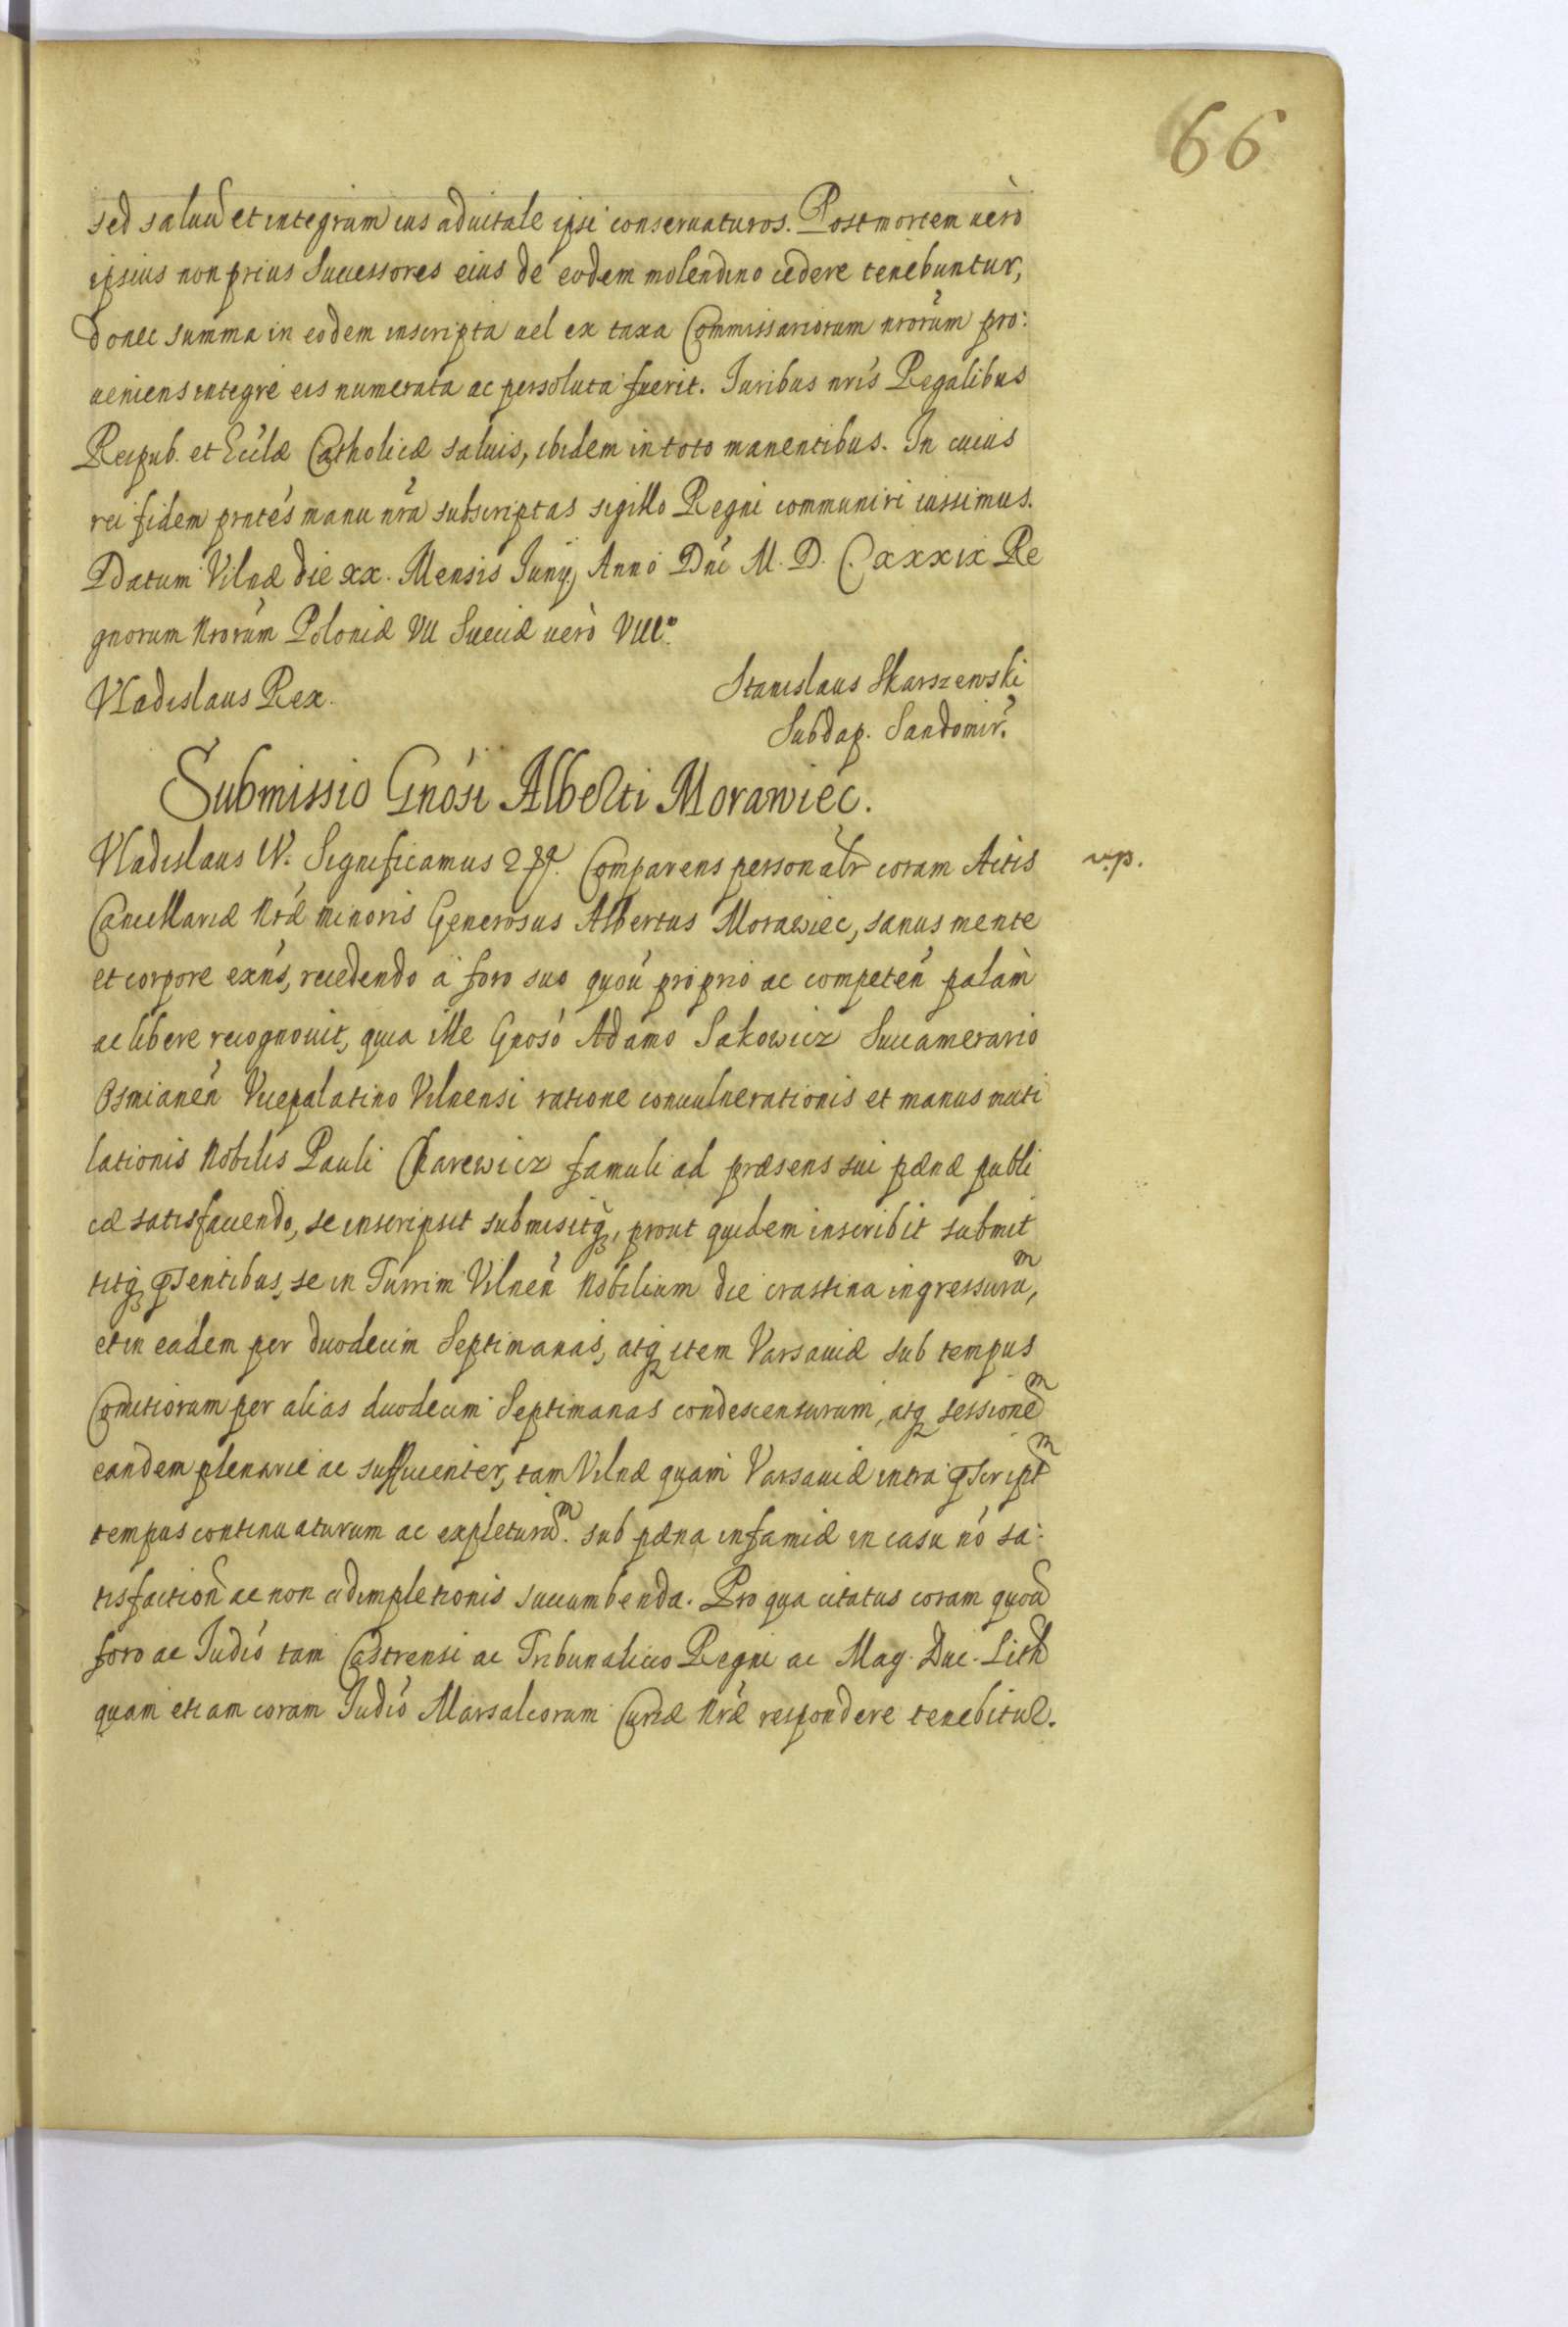 66
sed saluũ et integrum ius aduitale ipsi conseruaturos. Post mortem uerò
ipsius non prius Successores eius de eodem molendino cedere tenebuntur,
donec summa in eodem inscripta uel ex taxa Commissariorum nrorum pro:
ueniens integre eis numerata ac persoluta fuerit. Iuribus nris Regalibus
Reipub. et Ecclæ Catholicæ saluis, ibidem in toto manentibus. In cuius
rei fidem pntes manu nra subscriptas sigillo Regni communiri iussimus.
Datum Vilnæ die xx. Mensis Iunij Anno Dni M. D. C. xxxix Re
gnorum Nrorum Poloniæ VII Sueciæ uerò VIIIº.
Vladislaus Rex.
Stanislaus Skarszewski
Subdap. Sandomir.
Submissio Gnosi Alberti Morawiec.
Vladislaus IV. Significamus &c. Comparens personalr coram Actis
np.
Cancellariæ Nræ minoris Generosus Albertus Morawiec, sanus mente
et corpore exns, recedendo a foro suo quou proprio ac competen palam
ac libere recognouit, quia ille Gnoso Adamo Sakowicz Succamerario
Osmianen Vicepalatino Vilnensi ratione conuulnerationis et manus muti
lationis Nobilis Pauli Charewicz famuli ad præsens sui pænæ publi
cæ satisfaciendo, se inscripsit submisitq, prout quidem inscribit submit
titq pñsentibus, se in Turrim Vilnen Nobilium die crastina ingressurũ,
et in eadem per duodecim Septimanas, atq item Varsauiæ sub tempus
Comitiorum per alias duodecim Septimanas condescensurum, atq sessionẽ
eandem plenarie ac sufficienter, tam Vilnæ quam Varsauiæ intra pscriptm
tempus continuaturum ac expleturũ. sub pæna infamiæ in casu nõ sa:
tisfaction ac non adimpletionis succumbenda. Pro qua citatus coram quou
foro ac Iudio tam Castrensi ac Tribunalicio Regni ac Mag. Duc. Lith
quam etiam coram Iudio Marsalcorum Curiæ Nræ respondere tenebitur.